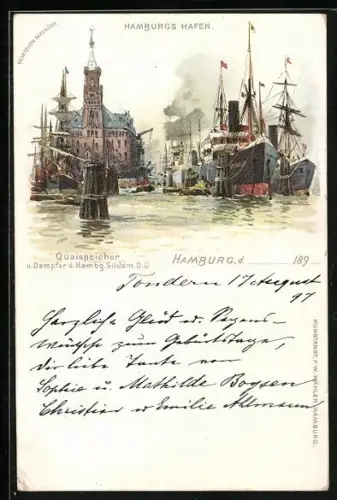 HAMBURGS HAFEN.
GESETZLICH GESCHÜTZT.
Quaispeicher
u. Dampfer d. Hambg. Südam. D. G.
HAMBURG, d 189
Tondern 17 August
97
Herzliche Glück u. Segens-
wünsche zum Geburtstage,
die liebe Tante von
Sophie u. Mathilde Boysen
Christian u Emilie Ahlmann
KUNSTANST. F. W. KÄHLER, HAMBURG.